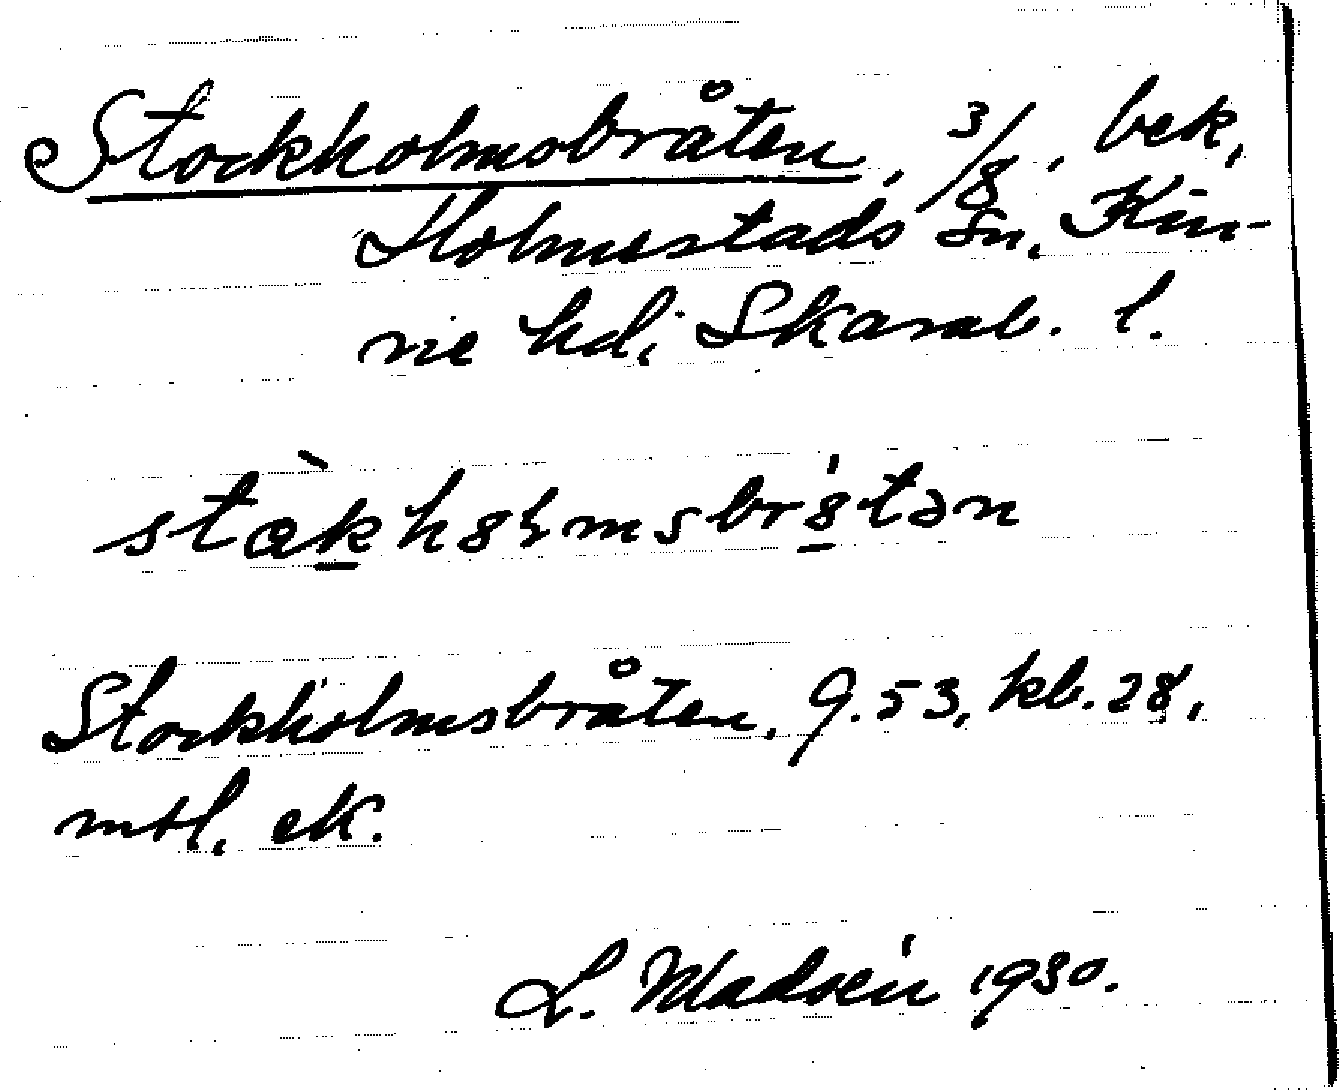 Stockholmsbråten, 3/8, bek,
Holmestads sn, Kin-
ne hd; Skarab. l.
Stockholmsbråten, G. 53, kb. 28,
mtl. ek.
L. Madsén 1930.